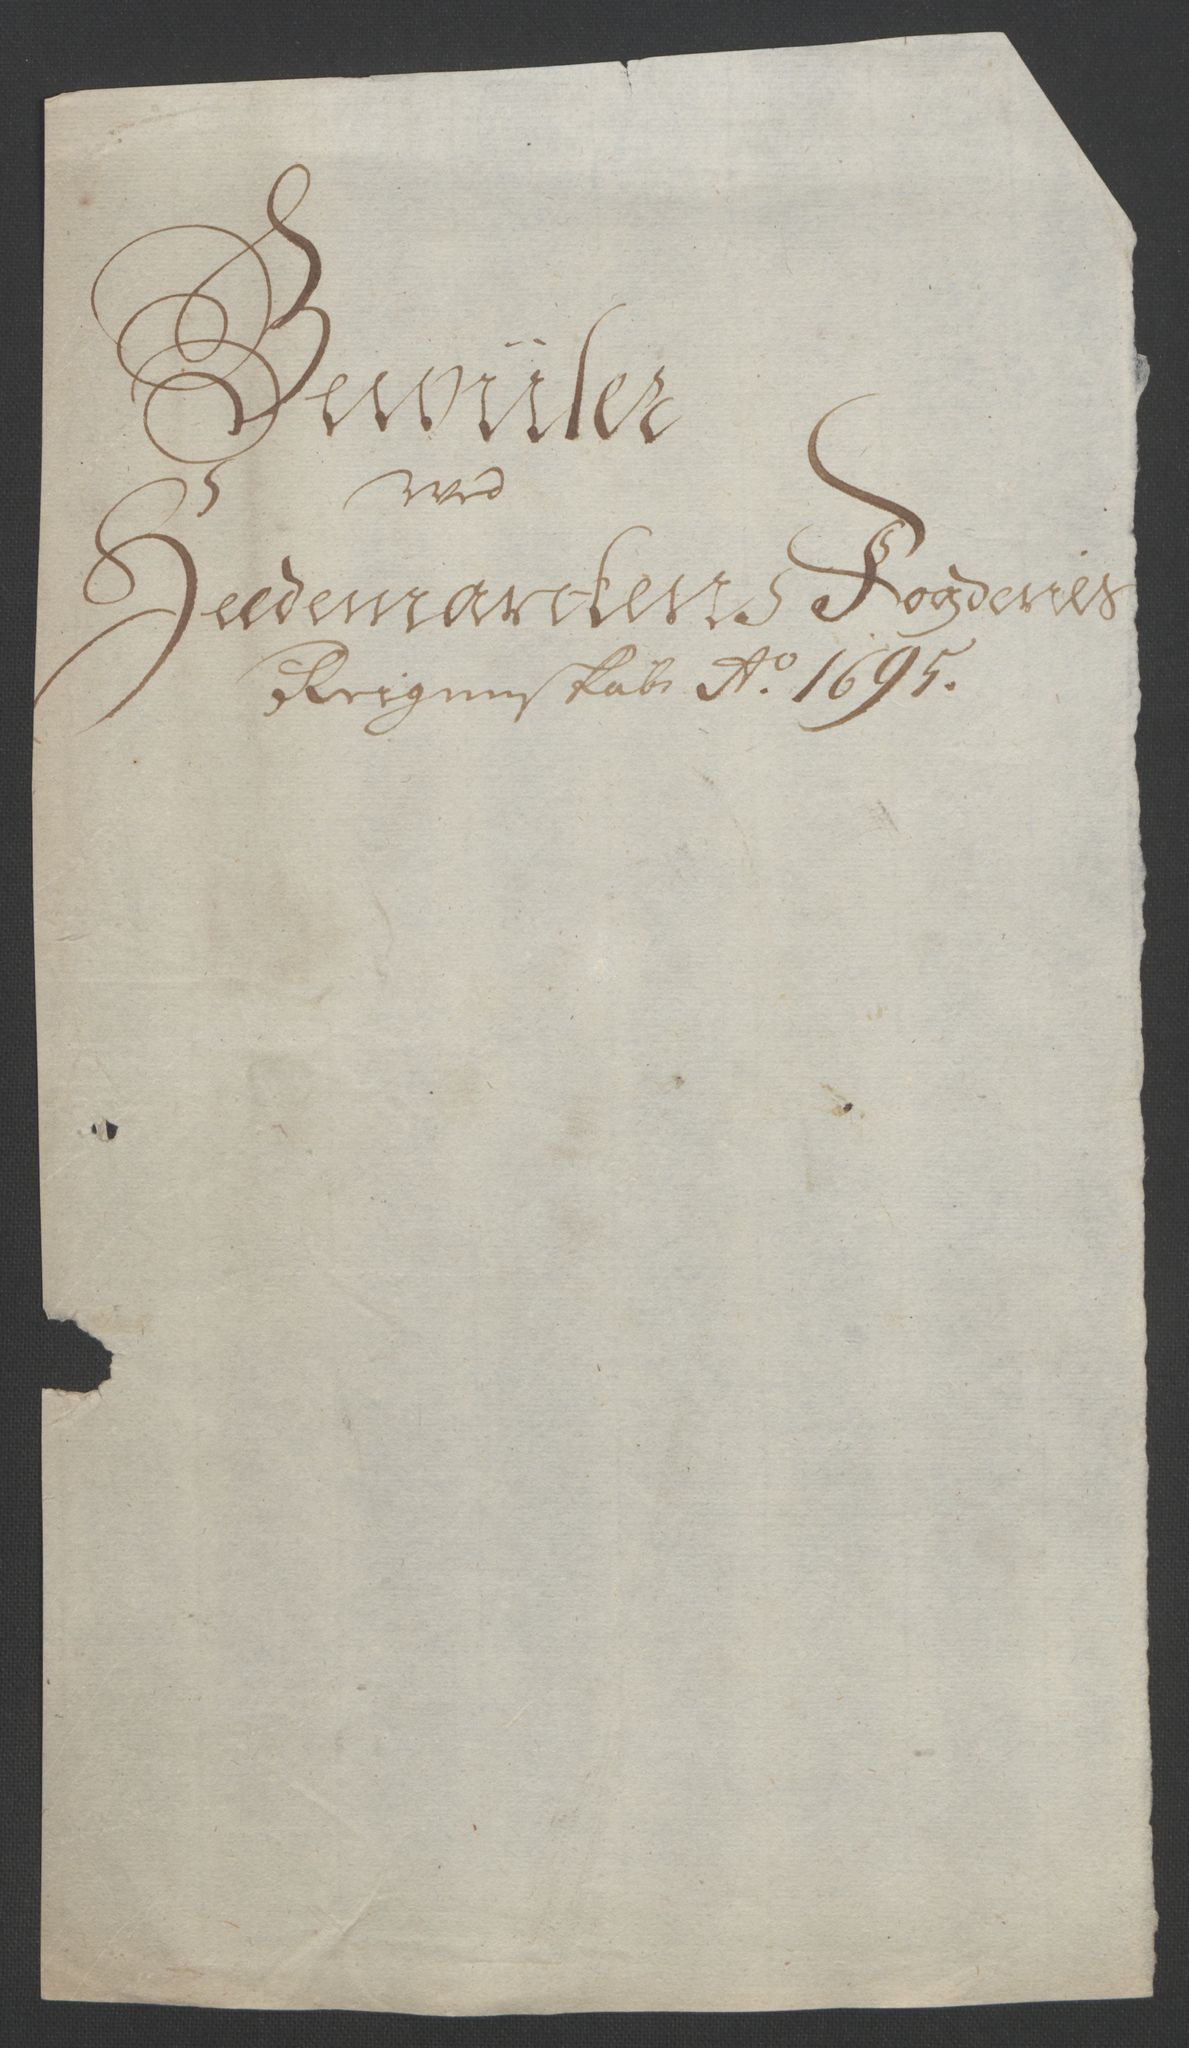 Bewiiser
wed
Hedemarckens Fogderies
Reigenskab Ao. 1695.